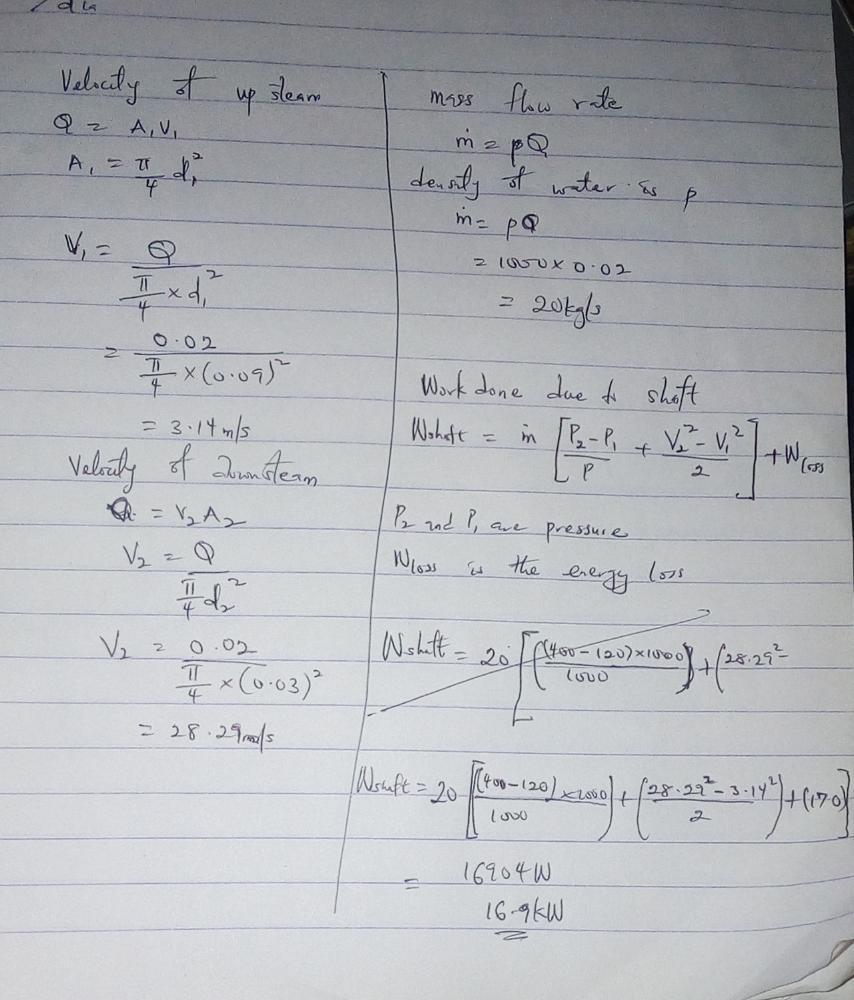 Velocity of up steam
Q = A₁V₁
A₁ = π/4 d₁²
V₁ = Q / (π/4 × d₁²)
= 0.02 / (π/4 × (0.09)²)
= 3.14 m/s
Velocity of Downsteam
Q = V₂A₂
V₂ = Q / (π/4 d₂²)
V₂ = 0.02 / (π/4 × (0.03)²)
= 28.29 m/s
mass flow rate
ṁ = pQ
density of water is p
ṁ = pQ
= 1000 × 0.02
= 20kg/s
Work done due to shaft
Wshaft = ṁ [(P₂-P₁)/P + (V₂² - V₁²)/2] + W loss
P₂ and P₁ are pressure
Wloss is the energy loss
Wshaft = 20 [((400-120)×1000)/1000) + (28.29²-
Wshaft = 20 [((400-120)×1000)/1000) + ((28.29² - 3.14²)/2) + (170)]
= 16904W
16.9kW